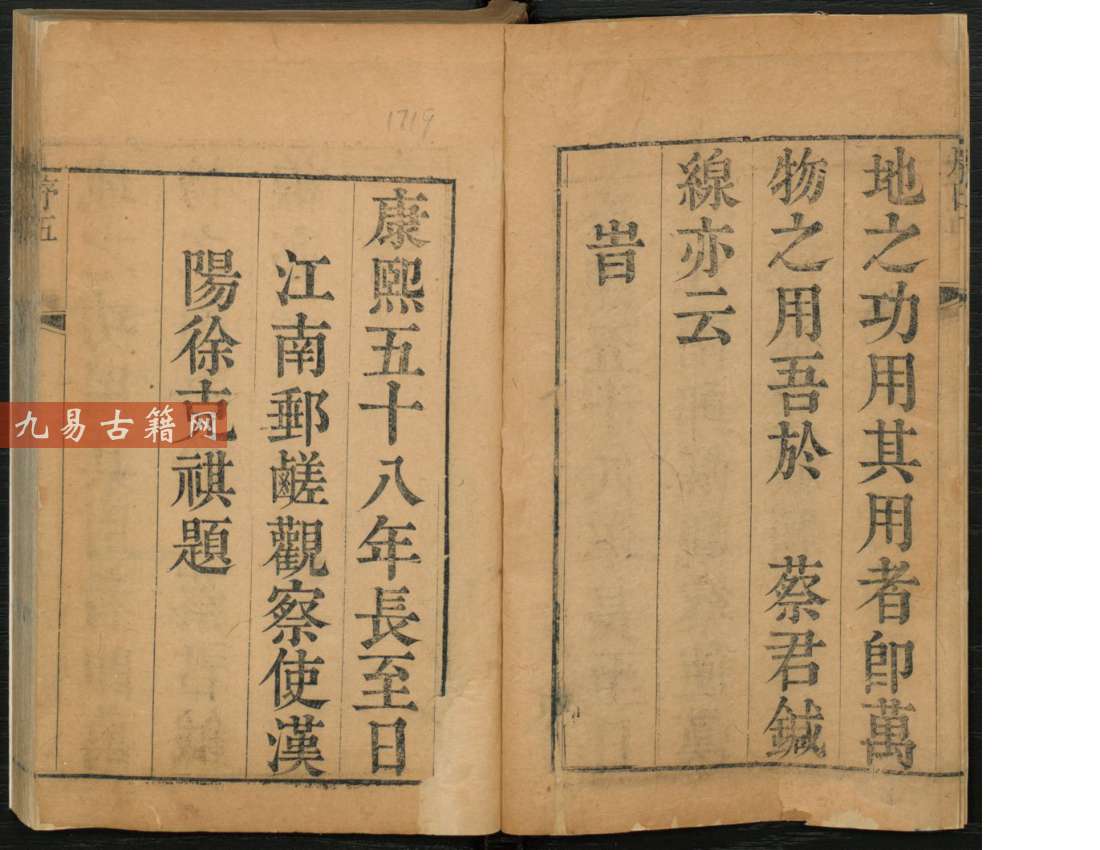 地之功用其用者卽萬
物之用吾於 蔡君鍼
線亦云
旹
康熙五十八年長至日
江南郵鹺觀察使漢
陽徐克祺題
序五
1719
九易古籍网